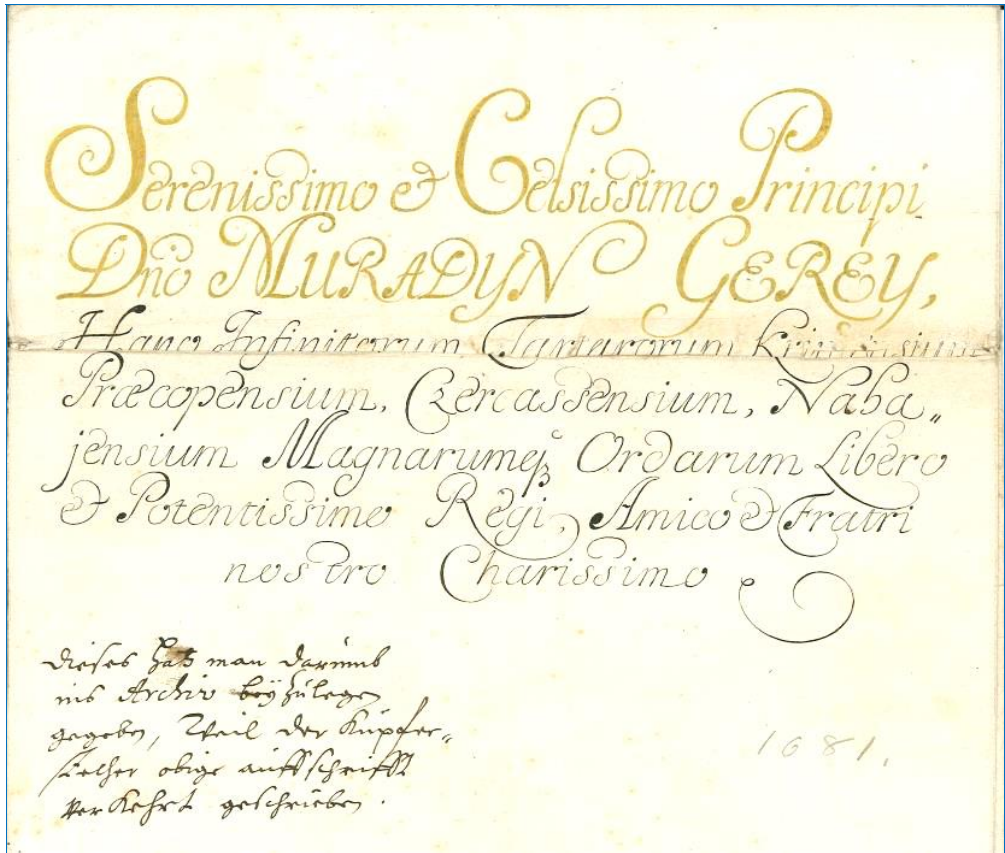 Serenissimo & Celsissimo Principi
Dn̄o MURADYN GEREY,
Hano Infinitorum Tartarorum
Præcopensium, Czercassensium, Naha„
jensium Magnarumqꝫ Ordarum Libero
& Potentissimo Regi, Amico & Fratri
nostro Charissimo
Dieses hatt man darumb
ins Archiv beyzulegen
gegeben, Weil der Kupfer„
stecher obige auffschrifft
verkehrt geschrieben.
1681.